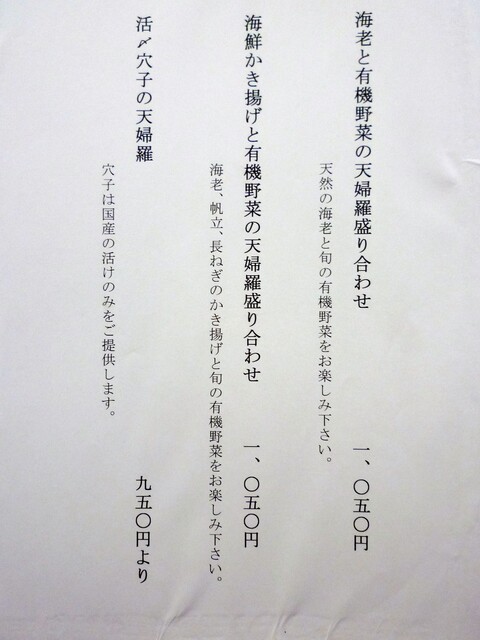 海老と有機野菜の天婦羅盛り合わせ 一、〇五〇円
天然の海老と旬の有機野菜をお楽しみ下さい。
海鮮かき揚げと有機野菜の天婦羅盛り合わせ 一、〇五〇円
海老、帆立、長ねぎのかき揚げと旬の有機野菜をお楽しみ下さい。
活〆穴子の天婦羅 九五〇円より
穴子は国産の活けのみをご提供します。